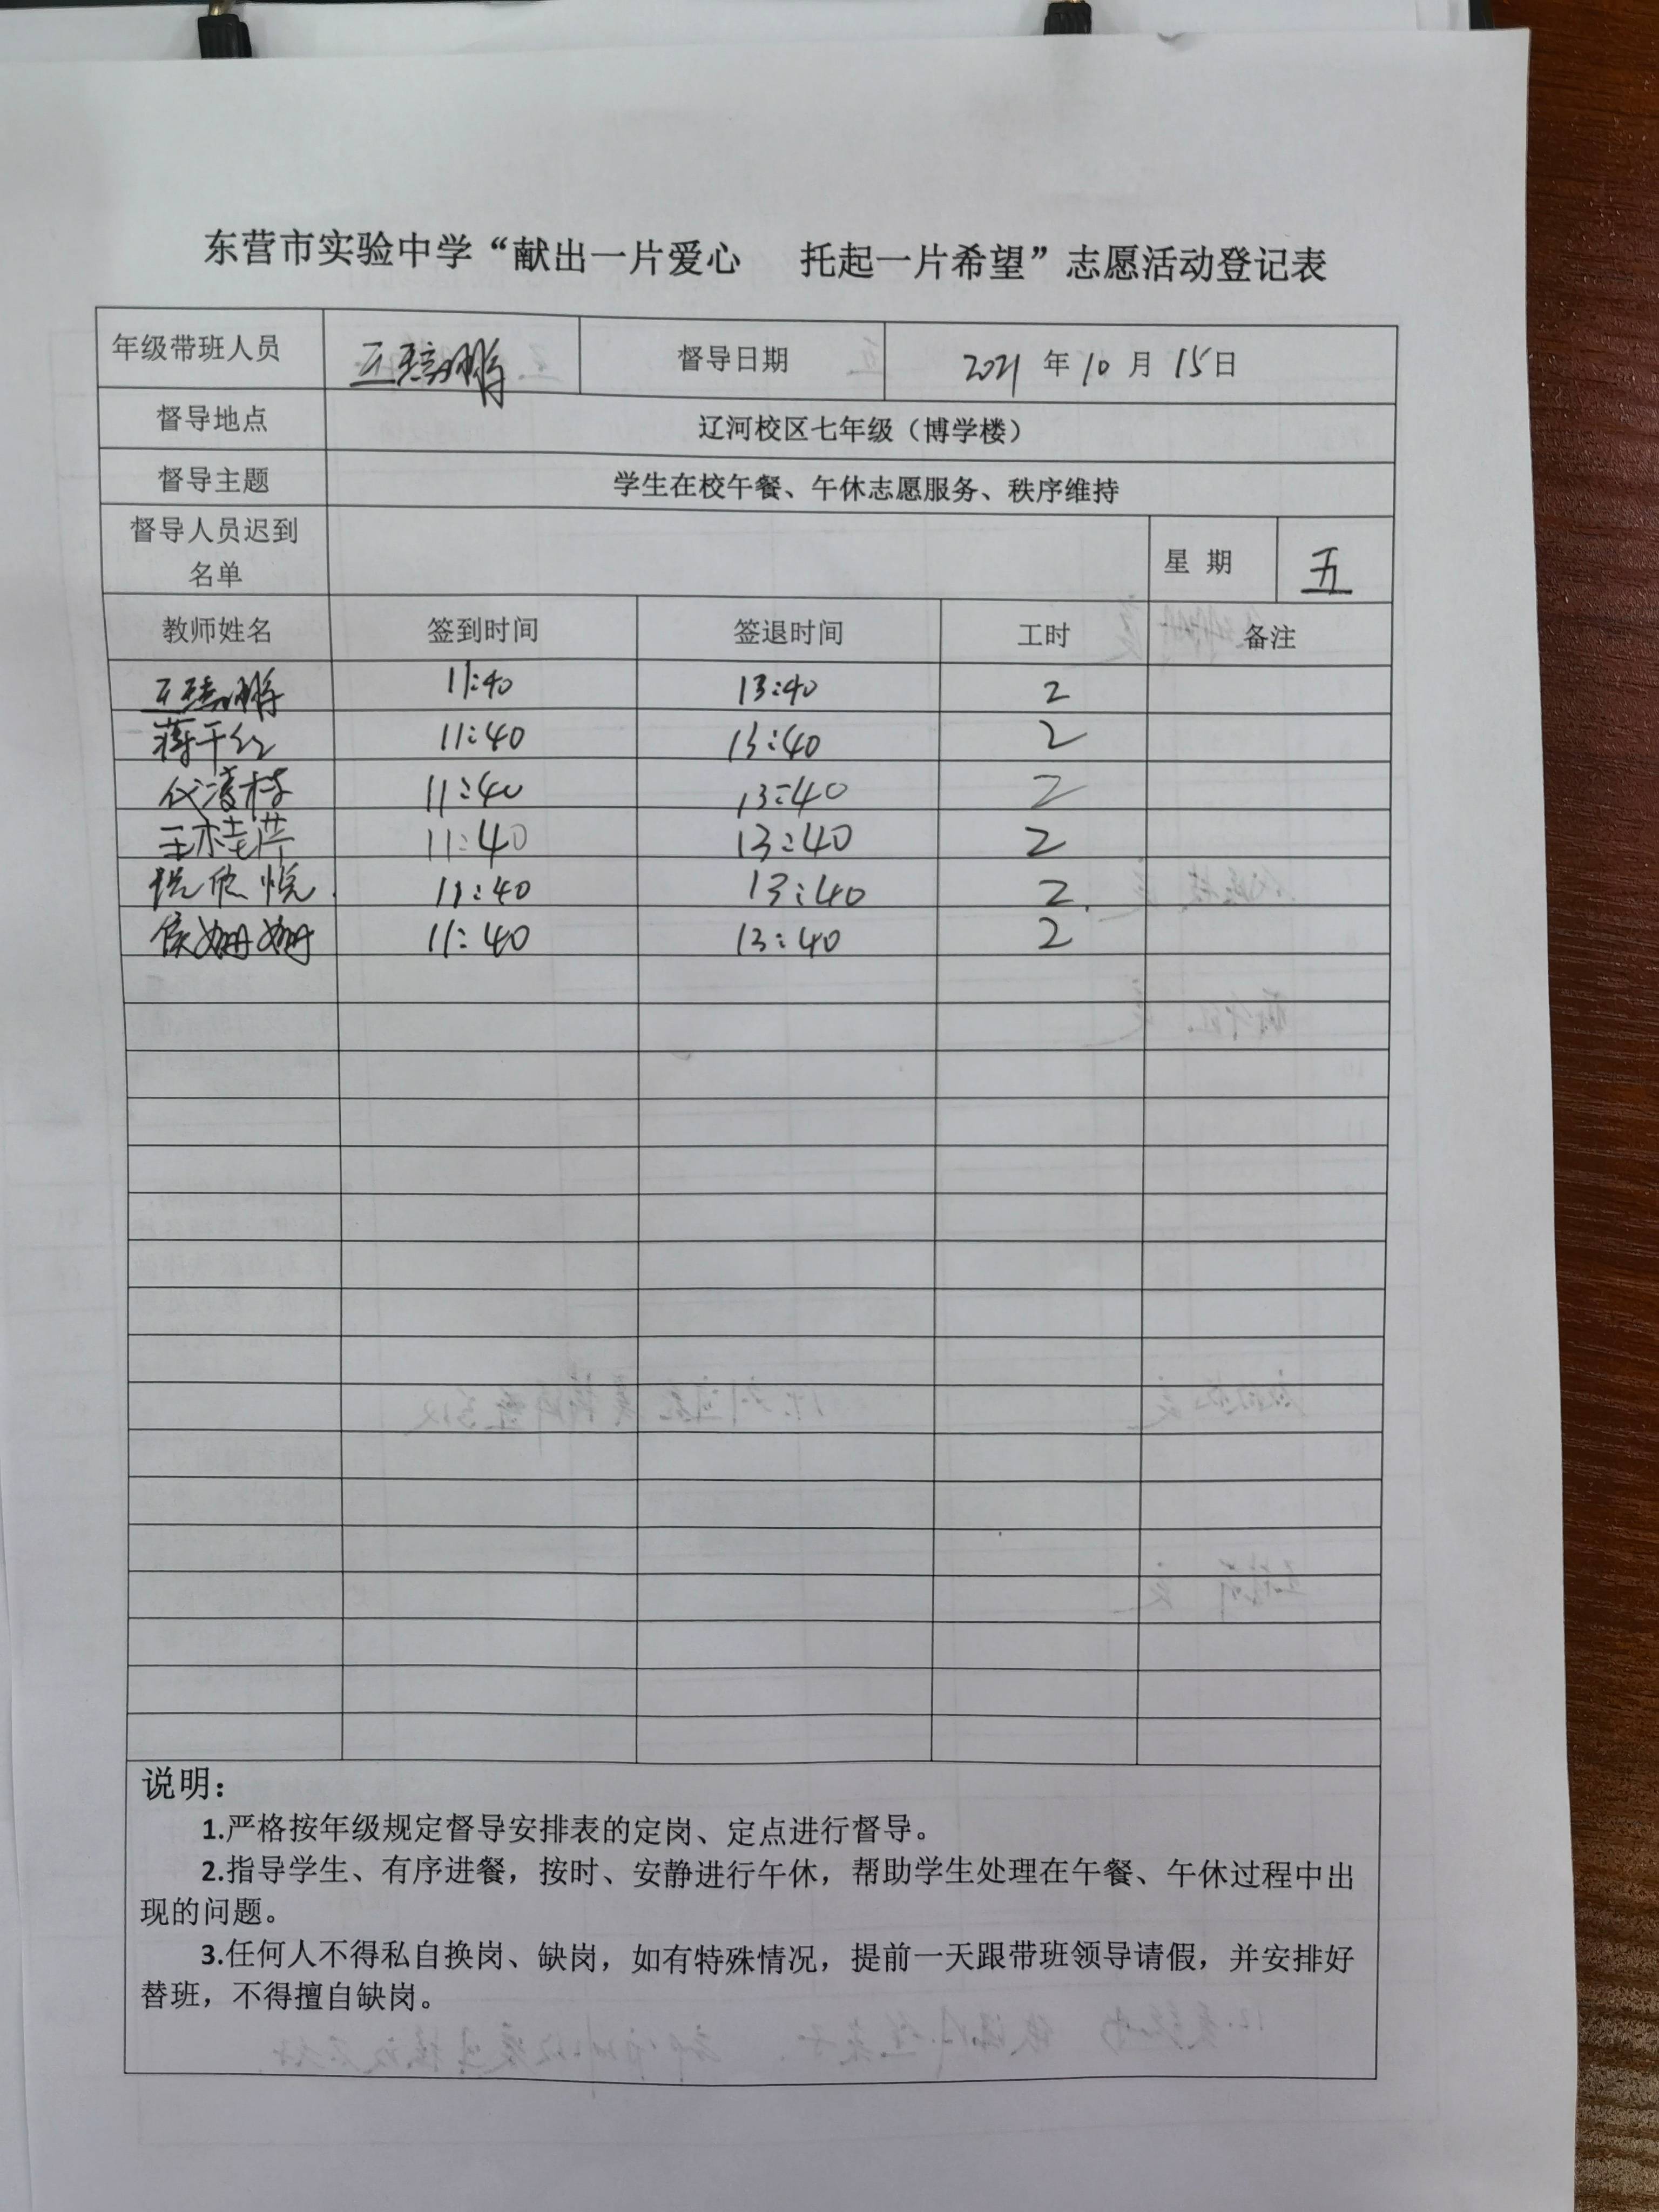 东营市实验中学“献出一片爱心 托起一片希望”志愿活动登记表
年级带班人员 督导日期 2021 年 10 月 15 日
督导地点 辽河校区七年级（博学楼）
督导主题 学生在校午餐、午休志愿服务、秩序维持
督导人员迟到名单 星 期 五
教师姓名 签到时间 签退时间 工时 备注
11:40 13:40 2
蒋干红 11:40 13:40 2
11:40 13:40 2
王桂萍 11:40 13:40 2
欣悦 11:40 13:40 2
侯姗姗 11:40 13:40 2
说明：
1.严格按年级规定督导安排表的定岗、定点进行督导。
2.指导学生、有序进餐，按时、安静进行午休，帮助学生处理在午餐、午休过程中出
现的问题。
3.任何人不得私自换岗、缺岗，如有特殊情况，提前一天跟带班领导请假，并安排好
替班，不得擅自缺岗。